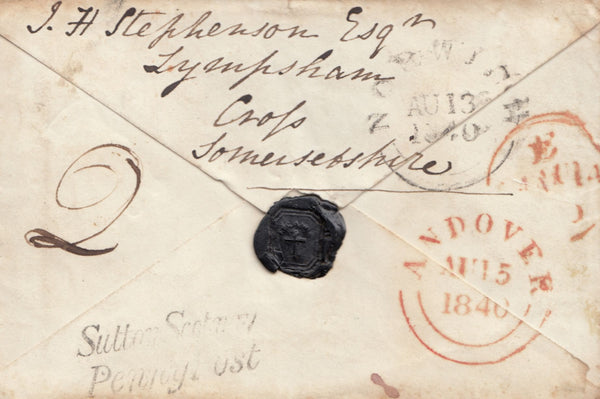 J. H Stephenson Esqr
Lympsham
Cross
Somersetshire
AU 13
1840
E
AU 14
2
ANDOVER
AU 15
1840
Sutton Scotney
Penny Post